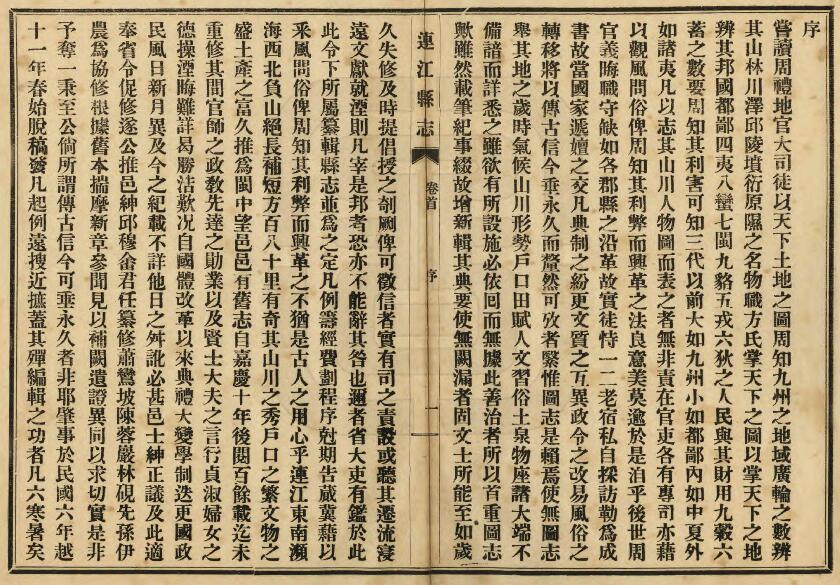 序
嘗讀周禮地官大司徒以天下土地之圖周知九州之地域廣輪之數辨
其山林川澤邱陵墳衍原隰之名物職方氏掌天下之圖以掌天下之地
辨其邦國都鄙四夷八蠻七閩九貉五戎六狄之人民與其財用九穀六
蓄之數要周知其利害可知三代以前大如九州小如都鄙內如中夏外
如諸夷凡以志其山川人物圖而表之者無非責在官吏各有專司亦藉
以觀風問俗俾周知其利弊而興革之法良意美莫逾於是洎乎後世周
官義晦職守缺如各郡縣之沿革故實徒恃一二老宿私自採訪勒為成
書故當國家遞嬗之交凡典制之紛更文質之互異政令之改易風俗之
轉移將以傳古信今垂永久而釐然可攷者繄惟圖志是賴焉使無圖志
舉其地之歲時氣候山川形勢戶口田賦人文習俗土泉物座諸大端不
備諳而詳悉之雖欲有所設施必依囘而無據此善治者所以首重圖志
歟雖然載筆紀事綴故增新輯其典要使無闕漏者固文士所能至如歲
連江縣志
卷首
序
一
久失修及時提倡授之剞劂俾可徵信者實有司之責設或聽其遷流寖
遠文獻就湮則凡宰是邦者恐亦不能辭其咎也邇者省大吏有鑑於此
此令下所屬纂輯縣志並為之定凡例籌經費劃程序尅期告蕆冀藉以
釆風問俗俾周知其利弊而興革之不猶是古人之用心乎連江東南瀕
海西北負山絕長補短方百八十里有奇其山川之秀戶口之繁文物之
盛土產之富久推為閩中望邑邑有舊志自嘉慶十年後閱百餘載迄未
重修其間官師之政敎先達之勛業以及賢士大夫之言行貞淑婦女之
德操湮晦難詳曷勝浩歎况自國體改革以來典禮大變學制迭更國政
民風日新月異及今之紀載不詳他日之舛訛必甚邑士紳正議及此適
奉省令促修遂公推邑紳邱穆畬君任纂修蕭鸞坡陳蓉巖林硯先孫伊
農為協修根據舊本揣摩新章參聞見以補闕遺證異同以求切實是非
予奪一秉至公倘所謂傳古信今可垂永久者非耶肇事於民國六年越
十一年春始脫稿發凡起例遠搜近摭蓋其殫編輯之功者凡六寒暑矣